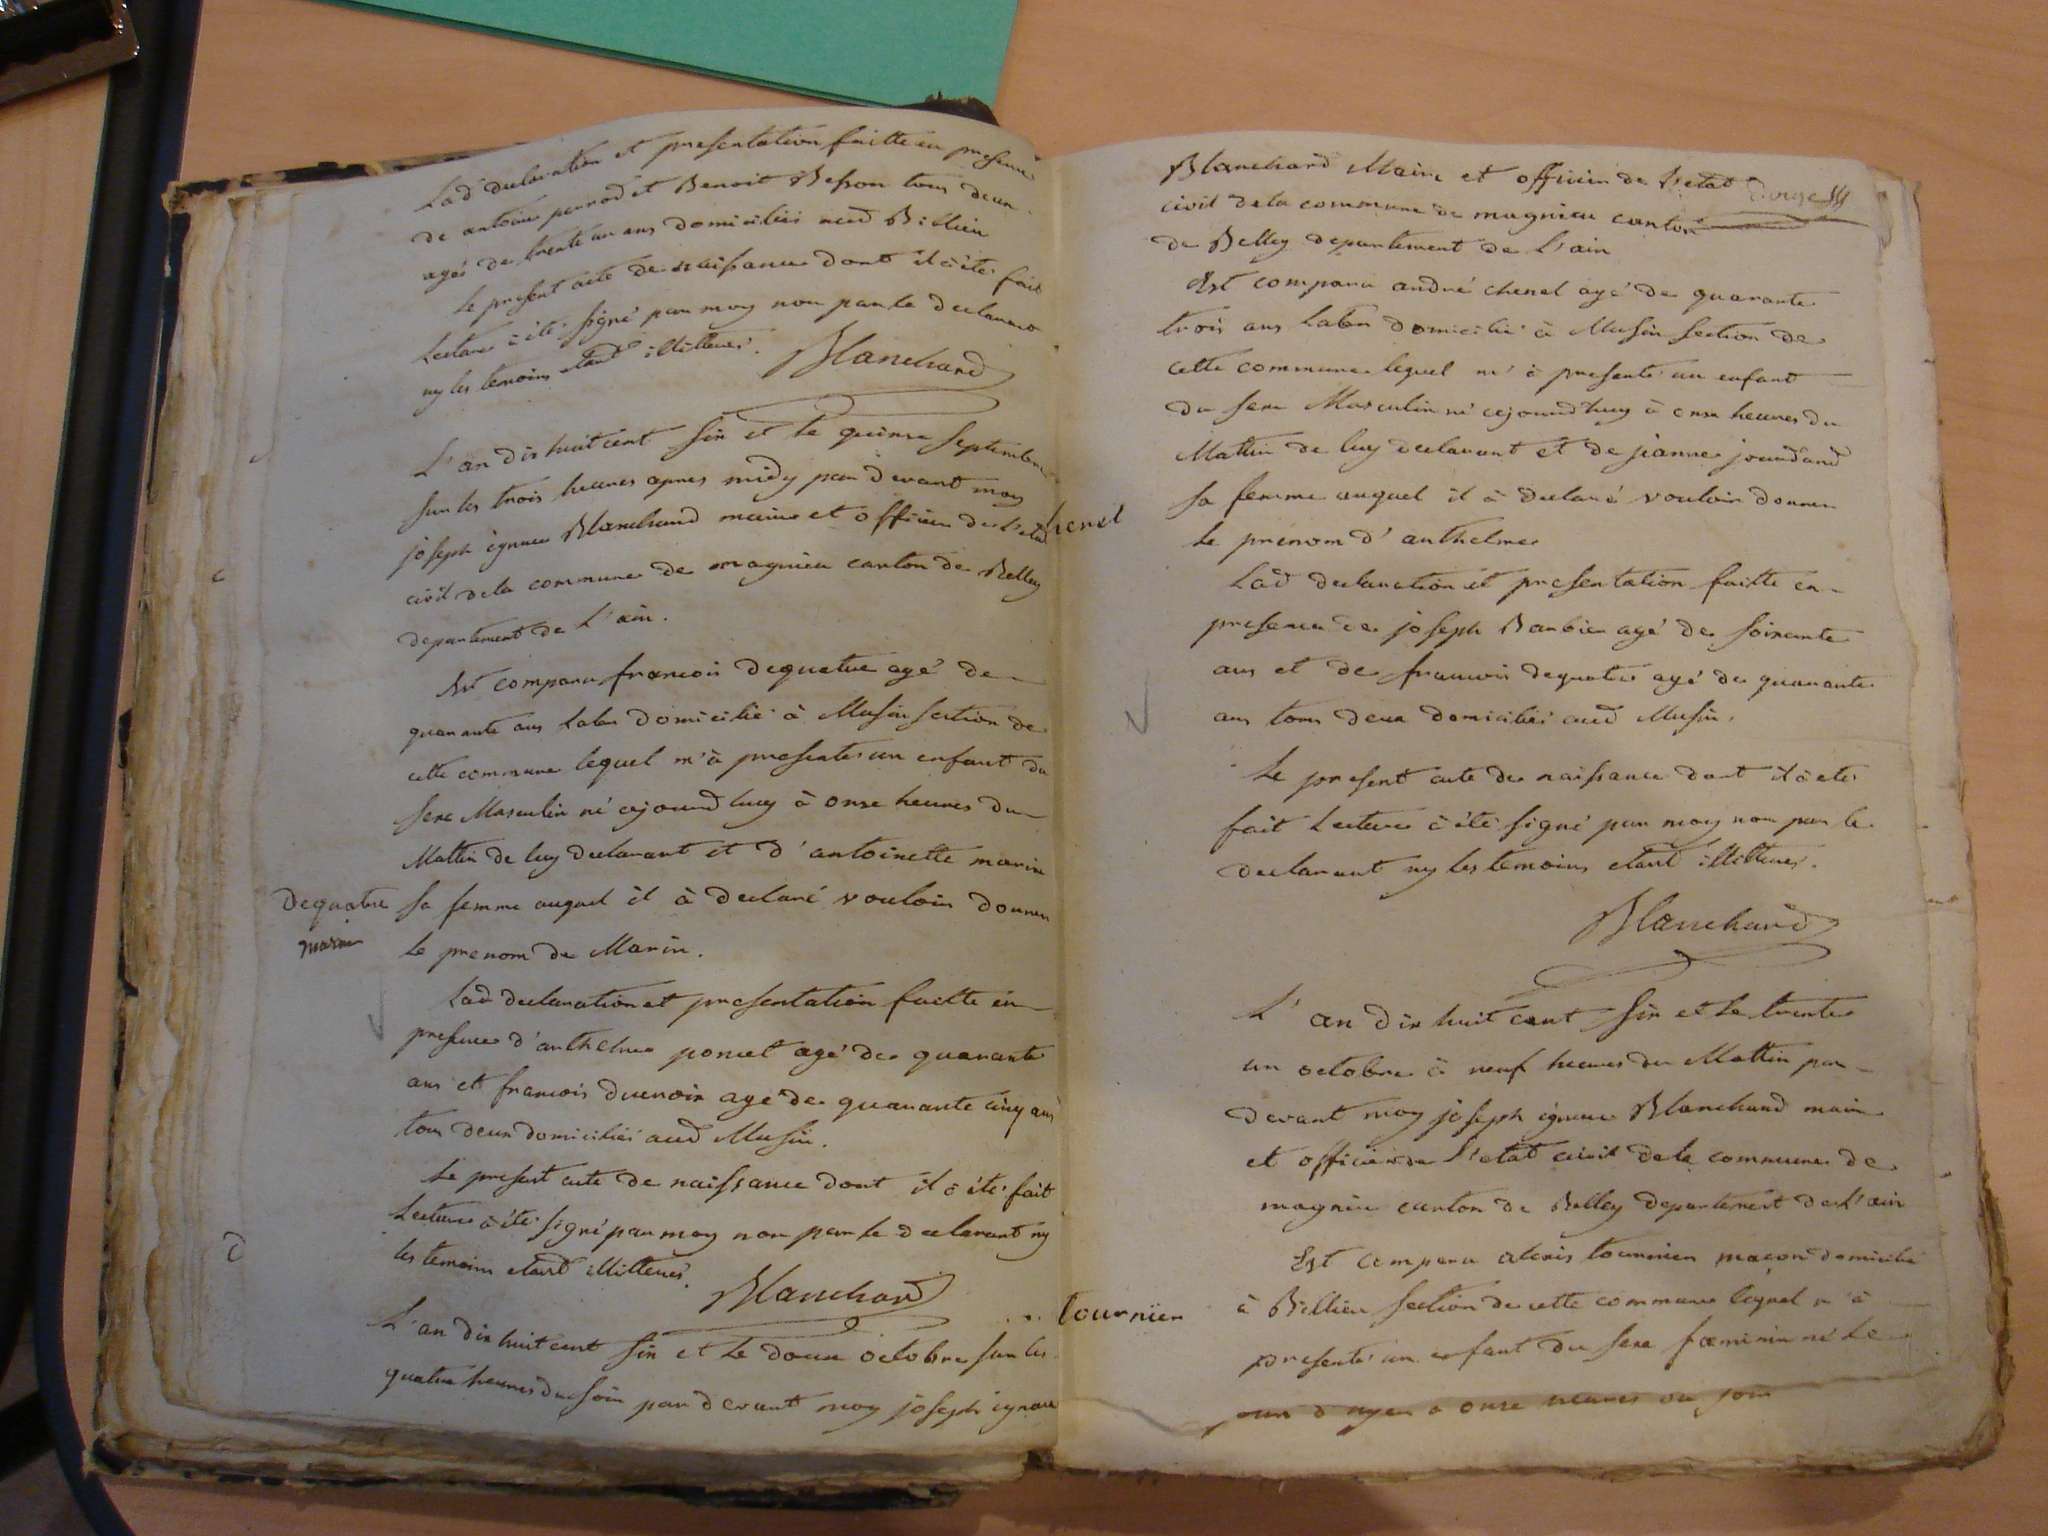 Lad declaration et presentation faitte en presence
de antoine perrod et Benoit Besson tous deux
agés de trente un ans domiciliés aud Billieu
le present acte de naissance dont il à été fait
Lecture à été signé par moy non par le declarant
ny les temoins etant illitterés.
Blanchard
L'an dix huit cent six et le quinze Septembre
sur les trois heures apres midy par devant moy
joseph ignace Blanchard maire et officier de L'etat
civil de la commune de magnieu canton de Belley
departement de L'ain.
Est comparu francois dequatre agé de
quarante ans Labr domicilié à Musin section de
cette commune lequel m'à presenté un enfant du
sexe Masculin né cejourd huy à onze heures du
Mattin de luy declarant et d'antoinette marin
Dequatre
marin
sa femme auquel il à declaré vouloir donner
Le prenom de Marin.
Lad declaration et presentation faitte en
presence d'anthelme poncet agé de quarante
ans et francois agé de quarante cinq ans
tous deux domiciliés aud Musin.
Le present acte de naissance dont il à été fait
Lecture à été signé par moy non par le declarant ny
les temoins etant illitterés.
Blanchard
L'an dix huit cent six et le douze octobre sur les
quatre heures du soir par devant moy joseph ignace
Blanchard Maire et officier de L'etat
civil de la commune de magnieu canton
de Belley departement de L'ain
Est comparu andré chenel agé de quarante
trois ans Labr domicilié à Musin section de
cette commune lequel m'à presenté un enfant
du sexe Masculin né cejourd'huy à onze heures du
Mattin de luy declarant et de jeanne jourdand
henel
sa femme auquel il à declaré vouloir donner
Le prenom d'anthelme
Lad declaration et presentation faitte en
presence de joseph Barbier agé de soixante
ans et de francois dequatre agé de quarante
ans tous deux domiciliés aud Musin.
Le present acte de naissance dont il à eté
fait Lecture à été signé par moy non par le
declarant ny les temoins etant illitterés.
Blanchard
L'an dix huit cent six et le trente
un octobre à neuf heures du Mattin par
devant moy joseph ignace Blanchard maire
et officier de L'etat civil de la commune de
magnieu canton de Belley departement de L'ain
Est comparu alexis tournier maçon domicilié
tournier
à Billieu section de cette commune lequel m'à
presenté un enfant du sexe fœminin né le
jour d'hyer à onze heures du soir